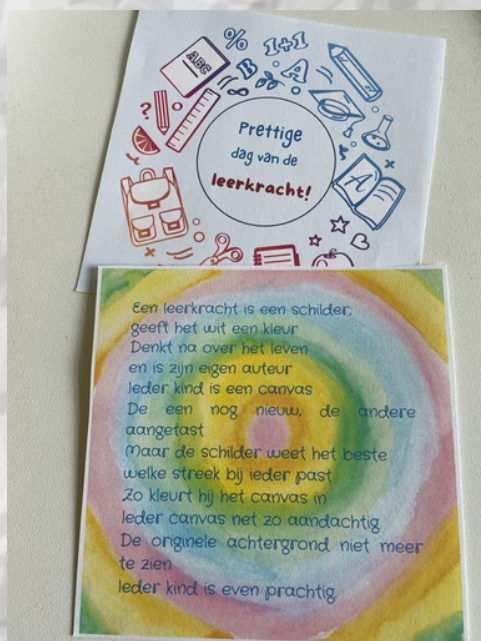 ABC
%
1+1
B
A
?
A
Prettige
dag van de
leerkracht!
Een leerkracht is een schilder;
geeft het wit een kleur
Denkt na over het leven
en is zijn eigen auteur
Ieder kind is een canvas
De een nog nieuw, de andere
aangetast
Maar de schilder weet het beste
welke streek bij ieder past
Zo kleurt hij het canvas in
Ieder canvas net zo aandachtig
De originele achtergrond niet meer
te zien
Ieder kind is even prachtig